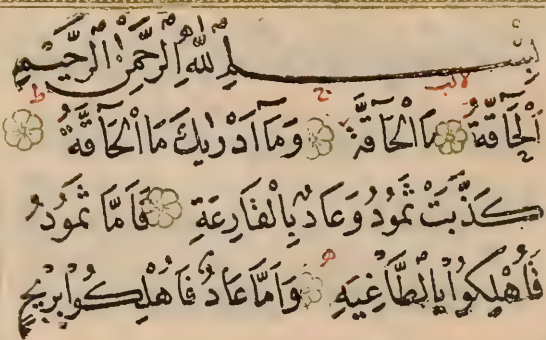 بِسْمِ اللّٰهِ الرَّحْمٰنِ الرَّحِيْمِ
اَلْحَآقَّةُ مَا الْحَآقَّةُ وَمَآ اَدْرٰيكَ مَا الْحَآقَّةُ
كَذَّبَتْ ثَمُودُ وَعَادٌ بِالْقَارِعَةِ فَاَمَّا ثَمُودُ
فَاُهْلِكُوا بِالطَّاغِيَةِ وَاَمَّا عَادٌ فَاُهْلِكُوا بِرِيحٍ